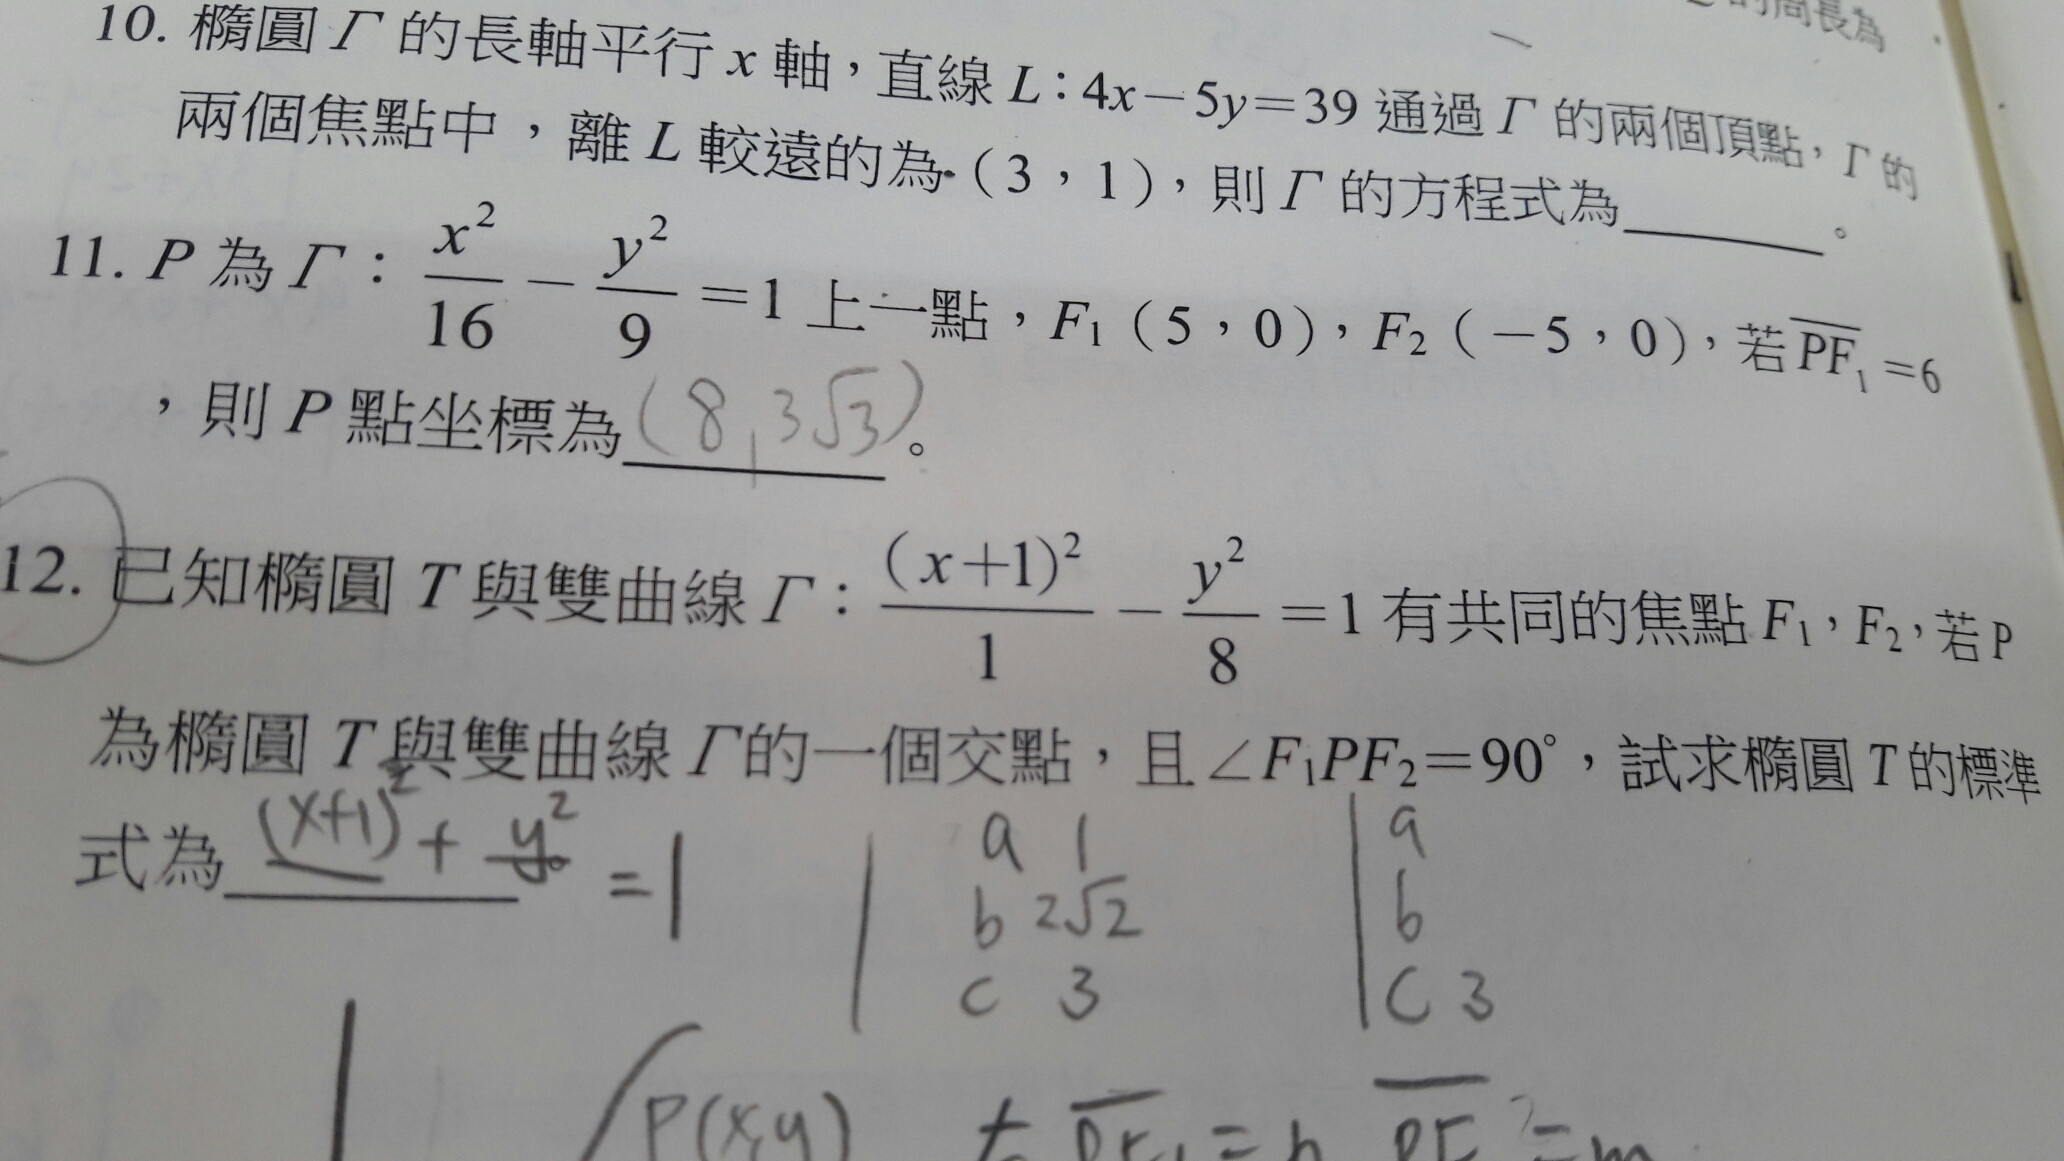 的周長為
10. 橢圓 Γ 的長軸平行 x 軸，直線 L：4x－5y＝39 通過 Γ 的兩個頂點，Γ 的
兩個焦點中，離 L 較遠的為（3，1），則 Γ 的方程式為______。
11. P 為 Γ：x²/16－y²/9＝1 上一點，F₁（5，0），F₂（－5，0），若 \overline{PF₁}＝6
，則 P 點坐標為(8, 3√3)。
12. 已知橢圓 T 與雙曲線 Γ：（x＋1）²/1－y²/8＝1 有共同的焦點 F₁，F₂，若 P
為橢圓 T 與雙曲線 Γ 的一個交點，且∠F₁PF₂＝90°，試求橢圓 T 的標準
式為______。
(x+1)²/ + y²/ = 1
a 1
b 2√2
c 3
a
b
c 3
P(x,y)